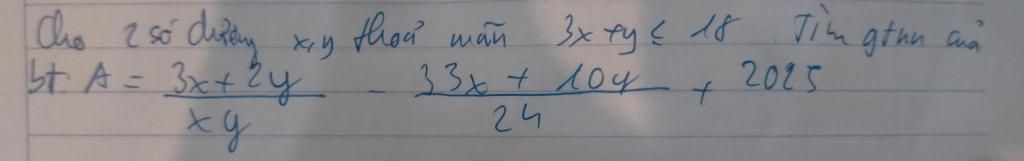 Cho 2 số dương x, y thoả mãn 3x+y ≤ 18. Tìm gtnn của
bt A = \frac{3x+2y}{xy} - \frac{33x+10y}{24} + 2025